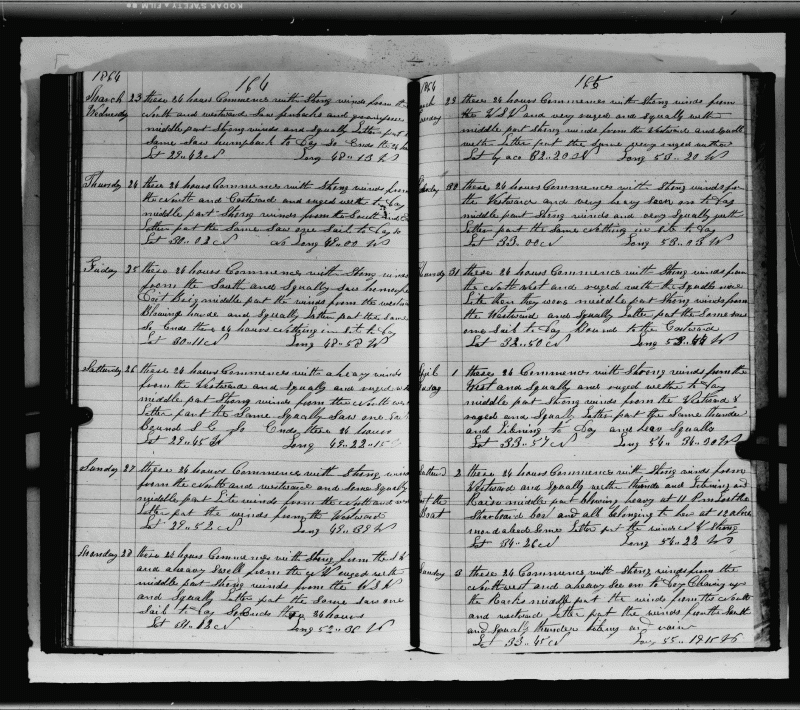 KODAK SAFETY FILM
1864
164
March 23 these 24 hours Commence with Strong winds from the
Wednesday North and westward Saw finbacks and
middle part Strong winds and Squally Letter part
Same Saw humpback to Day So Ends the 24
Lat 29..42 N Long 48..13 W
Thursday 24 these 24 hours Commence with Strong winds from
the North and Eastward and ruged wether to Day
middle part Strong winds from the South and
Letter part the Same Saw one Sail to Day So
Lat 30..02 N Long 49..00 W
Friday 25 these 24 hours Commence with Strong winds
from the South and Squally Saw
middle part the winds from the westward
Blowing harde and Squally Latter part the same
So Ends these 24 hours Nothing in Sit to Day
Lat 30..11 N Long 48..58 W
Satturday 26 these 24 hours Commences with a heavy winds
from the Westward and Squally and ruged
middle part Strong winds from the North
Letter part the Same Squally Saw one
Bound S E So Ends these 24 hours
Lat 29..45 N Long 49..22..15
Sunday 27 these 24 hours Commence with Strong winds
from the North and westward and Some Squally
middle part Lite winds from the North and
Letter part the winds from the Westward
Lat 29..52 N Long 49..39 W
Monday 28 these 24 hours Commence with Strong from the
and aheavy Swell from the N W ruged wether
middle part Strong winds from the W S W
and Squally Letter part the Same Saw one
Sail to Day So Ends the 24 hours
Lat 31..12 N Long 52..36 W
1864
165
29 these 24 hours Commences with Strong winds from
the W S W and very ruged and Squally wether
middle part Strong winds from the Westward and
wether Letter part the Same very ruged wether
Lat by acc 32..20 N Long 53..20 W
30 these 24 hours Commences with Strong winds from
the Westward and very heavy Sea on to Day
middle part Strong winds and very Squally wether
Letter part the Same Nothing in Sit to Day
Lat 33..00 N Long 53..03 W
31 these 24 hours Commence with Strong winds from
the North west and ruged wether the Squalls more
Lite then they wore middle part Strong winds from
the Westward and Squally Latter part the Same saw
one Sail to Day Bound to the Eastward
Lat 32..50 N Long 53..44 W
April 1 these 24 Commence with Strong winds from the
West and Squally and ruged wether to Day
middle part Strong winds from the Westward &
ruged and Squally Letter part the Same thunder
and Litening to Day and heavy Squalls
Lat 33..57 N Long 54..34..20 W
2 these 24 hours Commence with Strong winds from
Lost the Westward and Squally with Thunder and Litening and
Boat Raine middle part Blowing heavy at 11 P m Lost the
Starboard Bow and all belonging to her at 12 a
Letter part the winds N & Strong
Lat 34..26 N Long 54..22 W
Sunday 3 these 24 Commence with Strong winds from the
Northwest and aheavy Sea on to Day
middle part the winds from the North
and westward Letter part the winds from the North
and Squals thunder litning and rain
Lat 33..45 N Long 55..19..15 W